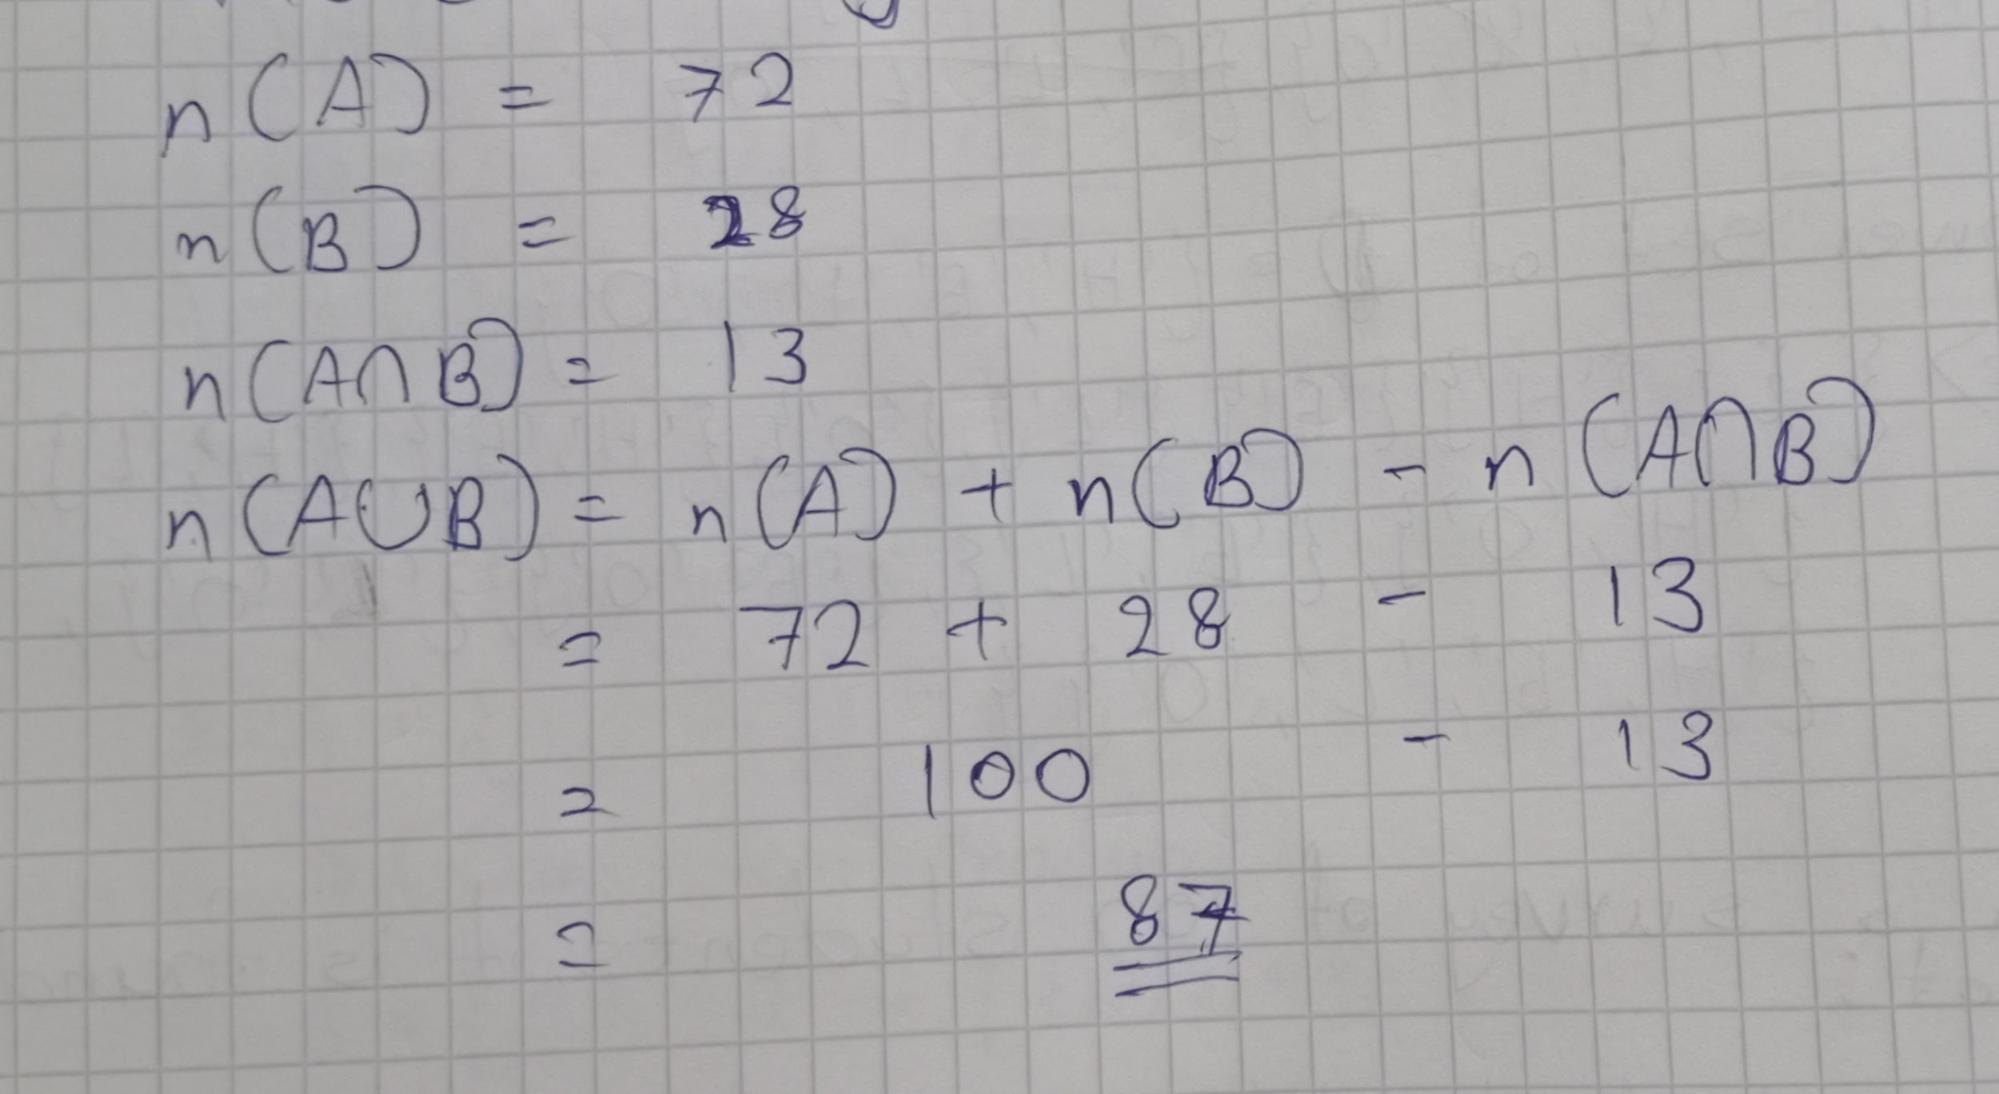 n(A) = 72
n(B) = 28
n(A∩B) = 13
n(A∪B) = n(A) + n(B) - n(A∩B)
= 72 + 28 - 13
= 100 - 13
= 87